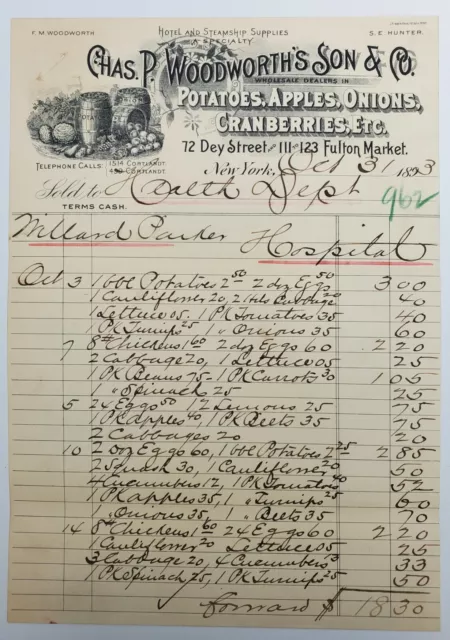 F. M. WOODWORTH
HOTEL AND STEAMSHIP SUPPLIES
A SPECIALTY
S. E. HUNTER.
CHAS. P. WOODWORTH'S SON & CO.
WHOLESALE DEALERS IN
POTATOES, APPLES, ONIONS,
CRANBERRIES, ETC.
72 DEY STREET AND 111 TO 123 FULTON MARKET.
TELEPHONE CALLS: 1514 CORTLANDT.
450 CORTLANDT.
New York, Oct 31 1893
Sold to Health Dept
962
TERMS CASH.
Willard Parker Hospital
Oct 3 1 bbl Potatoes 2 50 2 doz Eggs 50 3 00
1 Cauliflower 20, 2 Hds Cabbage 20 40
1 Lettuce 05. 1 PK Tomatoes 35 40
1 PK Turnips 25 1 " Onions 35 60
7 8 # Chickens 1 60 2 doz Eggs 60 2 20
2 Cabbage 20, 1 Lettuce 05 25
1 PK Beans 75 - 1 PK Carrots 30 1 05
1 " Spinach 25 25
5 24 Eggs 50 12 Lemons 25 75
1 PK Apples 40 1 PK Beets 35 75
2 Cabbages 20 20
10 2 doz Eggs 60, 1 bbl Potatoes 2 25 2 85
2 Squash 30, 1 Cauliflower 20 50
4 Cucumbers 12, 1 PK Tomatoes 40 52
1 PK apples 35, 1 " Turnips 25 60
1 " Onions 35 1 " Beets 35 70
14 8 # Chickens 1 60 24 Eggs 60 2 20
1 Cauliflower 20 Lettuce 05 25
3 Cabbage 20, 4 Cucumbers 13 33
1 PK Spinach 25, 1 PK Turnips 25 50
forward $ 18 30